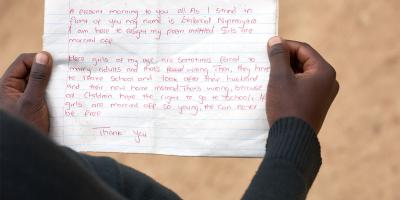 A pleasant morning to you all. As I stand in
front of you my name is
I am here to resight my poem intitled Girls are
married off.
Here girls of my age, are Sometimes forced to
marry adults and that's wrong. Then, they have
to leave School and look after their husband
and their new home instead. That's wrong, because
all Children have the right to go to School. If
girls are married off so young, they can never
be free.
Thank you